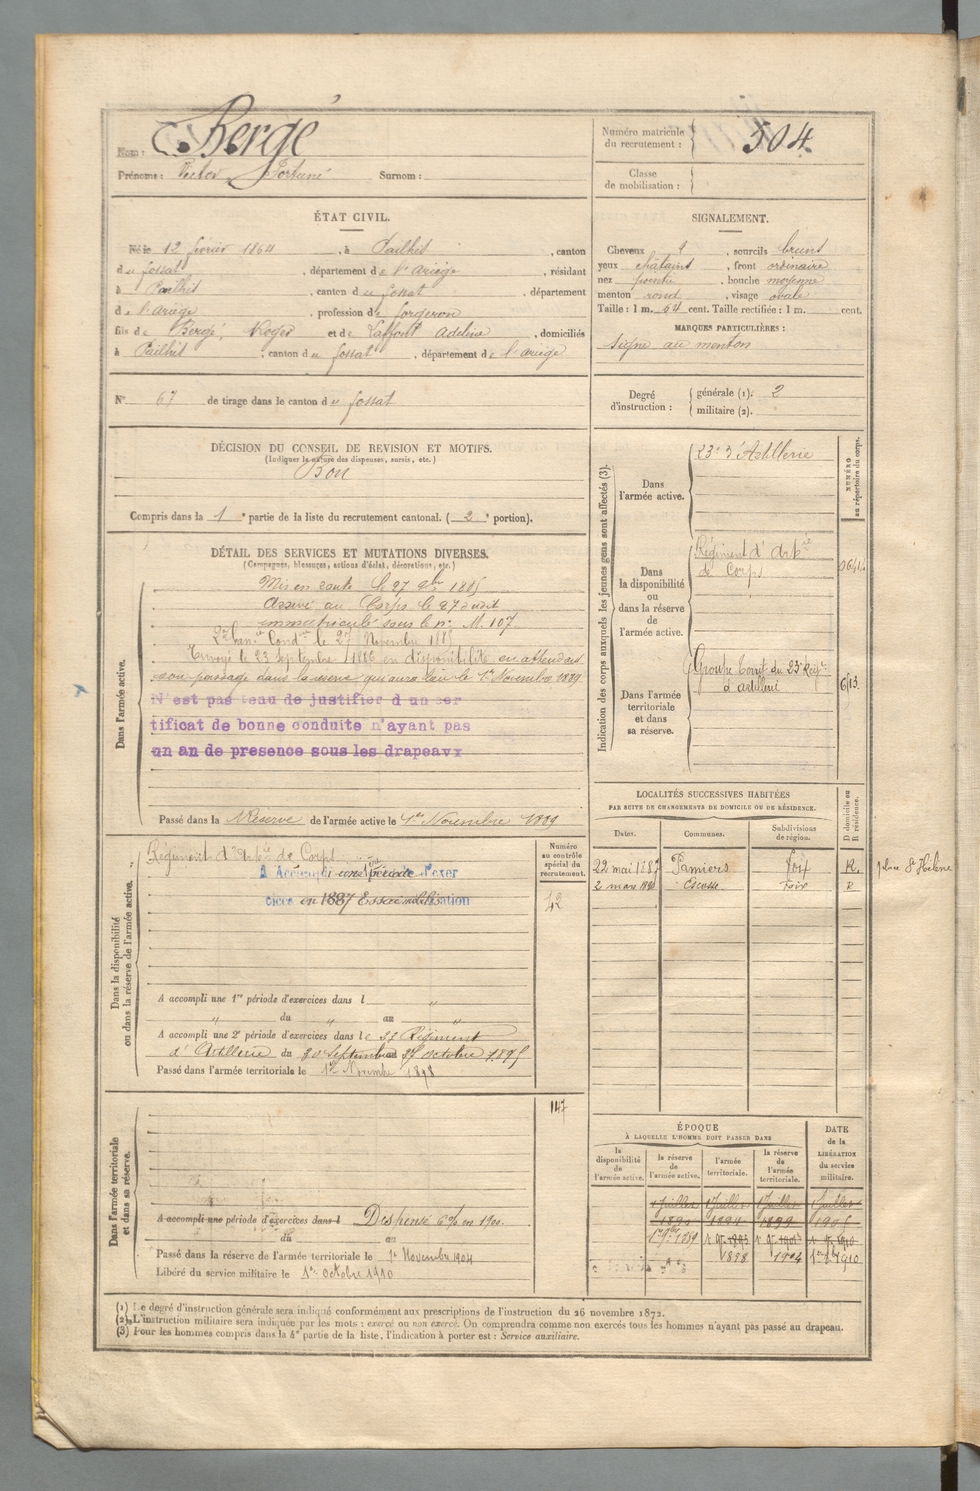 Nom : Bergé
Prénoms : Victor Fortuné Surnom :
Numéro matricule du recrutement : 504.
Classe de mobilisation :
ÉTAT CIVIL.
Né le 12 février 1864, à Pailhès, canton
du fossat, département de l'Ariège, résidant
à Pailhès, canton du fossat, département
d e l'Ariège, profession de forgeron
fils de Bergé, Roger et de Laffont Adelina, domiciliés
à Pailhès, canton du fossat, département de l'ariège
N° 67 de tirage dans le canton du fossat
SIGNALEMENT.
Cheveux q, sourcils bruns
yeux châtains, front ordinaire
nez pointu, bouche moyenne
menton rond, visage ovale
Taille : 1 m. 64 cent. Taille rectifiée : 1 m. cent.
MARQUES PARTICULIÈRES :
signe au menton
Degré d'instruction :
générale (1). 2
militaire (2).
DÉCISION DU CONSEIL DE REVISION ET MOTIFS.
(Indiquer la nature des dispenses, sursis, etc.)
Bon
Compris dans la 1e partie de la liste du recrutement cantonal. (2e portion).
DÉTAIL DES SERVICES ET MUTATIONS DIVERSES.
(Campagnes, blessures, actions d'éclat, décorations, etc.)
Dans l'armée active.
Mis en route le 27 9bre 1885
Arrivé au Corps le 27 dudit
immatriculé sous le n° M. 107
2e Can. Cond. le 27 Novembre 1885
Envoyé le 23 septembre 1886 en disponibilité en attendant
son passage dans la réserve qui aura lieu le 1er Novembre 1889
N'est pas tenu de justifier d'un cer
tificat de bonne conduite n'ayant pas
un an de presence sous les drapeaux
Passé dans la Réserve de l'armée active le 1er Novembre 1889
Indication des corps auxquels les jeunes gens sont affectés (3).
NUMÉRO au répertoire du corps.
Dans l'armée active.
23e d'Artillerie
Dans la disponibilité ou dans la réserve de l'armée active.
Régiment d'Artie
de Corps
Dans l'armée territoriale et dans sa réserve.
Groupe territ. du 23e Régt
d'artillerie
6/13.
LOCALITÉS SUCCESSIVES HABITÉES
PAR SUITE DE CHANGEMENTS DE DOMICILE OU DE RÉSIDENCE.
Dates. Communes. Subdivisions de région. D domicile ou R résidence.
22 mai 1887 Pamiers Foix R. place Ste Hélène
2 mars Escosse Foix R
Dans la disponibilité ou dans la réserve de l'armée active.
Numéro au contrôle spécial du recrutement.
Régiment d'Artie de Corps
A Accompli une 1ère période d'exer
cices en 1887 Essai mobilisation
42
A accompli une 1re période d'exercices dans l "
" du " au "
A accompli une 2e période d'exercices dans le 37 Régiment
d'Artillerie du 30 Septembre au 27 octobre 1895
Passé dans l'armée territoriale le 1er Novembre 1898
Dans l'armée territoriale et dans sa réserve.
147
A accompli une période d'exercices dans l Dispensé 6% en 1900.
du au
Passé dans la réserve de l'armée territoriale le 1er Novembre 1904
Libéré du service militaire le 1er octobre 1910
ÉPOQUE
À LAQUELLE L'HOMME DOIT PASSER DANS
DATE de la LIBÉRATION du service militaire.
la disponibilité de l'armée active. la réserve de l'armée active. l'armée territoriale. la réserve de l'armée territoriale.
1 Juillet 1 Juillet 1 Juillet 1 Juillet
1890 1894 1899 1905
1er 9bre 1889
1898 1904 1910
(1) Le degré d'instruction générale sera indiqué conformément aux prescriptions de l'instruction du 26 novembre 1872.
(2) L'instruction militaire sera indiquée par les mots : exercé ou non exercé. On comprendra comme non exercés tous les hommes n'ayant pas passé au drapeau.
(3) Pour les hommes compris dans la 4e partie de la liste, l'indication à porter est : Service auxiliaire.